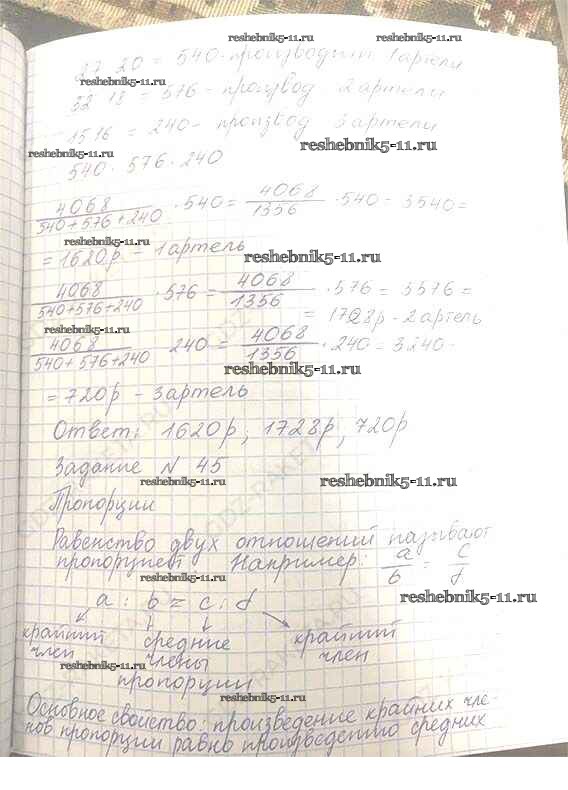 27 · 20 = 540 - производит 1 артели
reshebnik5-11.ru
reshebnik5-11.ru
32 · 18 = 576 - произвед 2 артели
15 · 16 = 240 - произвед 3 артели
reshebnik5-11.ru
reshebnik5-11.ru
540 · 576 · 240
4068 / 540+576+240 · 540 = 4068 / 1356 · 540 = 3 · 540 =
reshebnik5-11.ru
= 1620р - 1 артель
reshebnik5-11.ru
4068 / 540+576+240 · 576 = 4068 / 1356 · 576 = 3 · 576 =
= 1728р - 2 артель
reshebnik5-11.ru
4068 / 540+576+240 · 240 = 4068 / 1356 · 240 = 3 · 240 =
reshebnik5-11.ru
= 720р - 3 артель
Ответ: 1620р, 1728р, 720р
Задание N 45
reshebnik5-11.ru
reshebnik5-11.ru
Пропорции
Равенство двух отношений называют
пропорцией Например: a/b = c/d
reshebnik5-11.ru
reshebnik5-11.ru
a : b = c : d
крайний средние крайний
член члены член
reshebnik5-11.ru
пропорции
reshebnik5-11.ru
Основное свойство: произведение крайних чле-
нов пропорции равно произведению средних